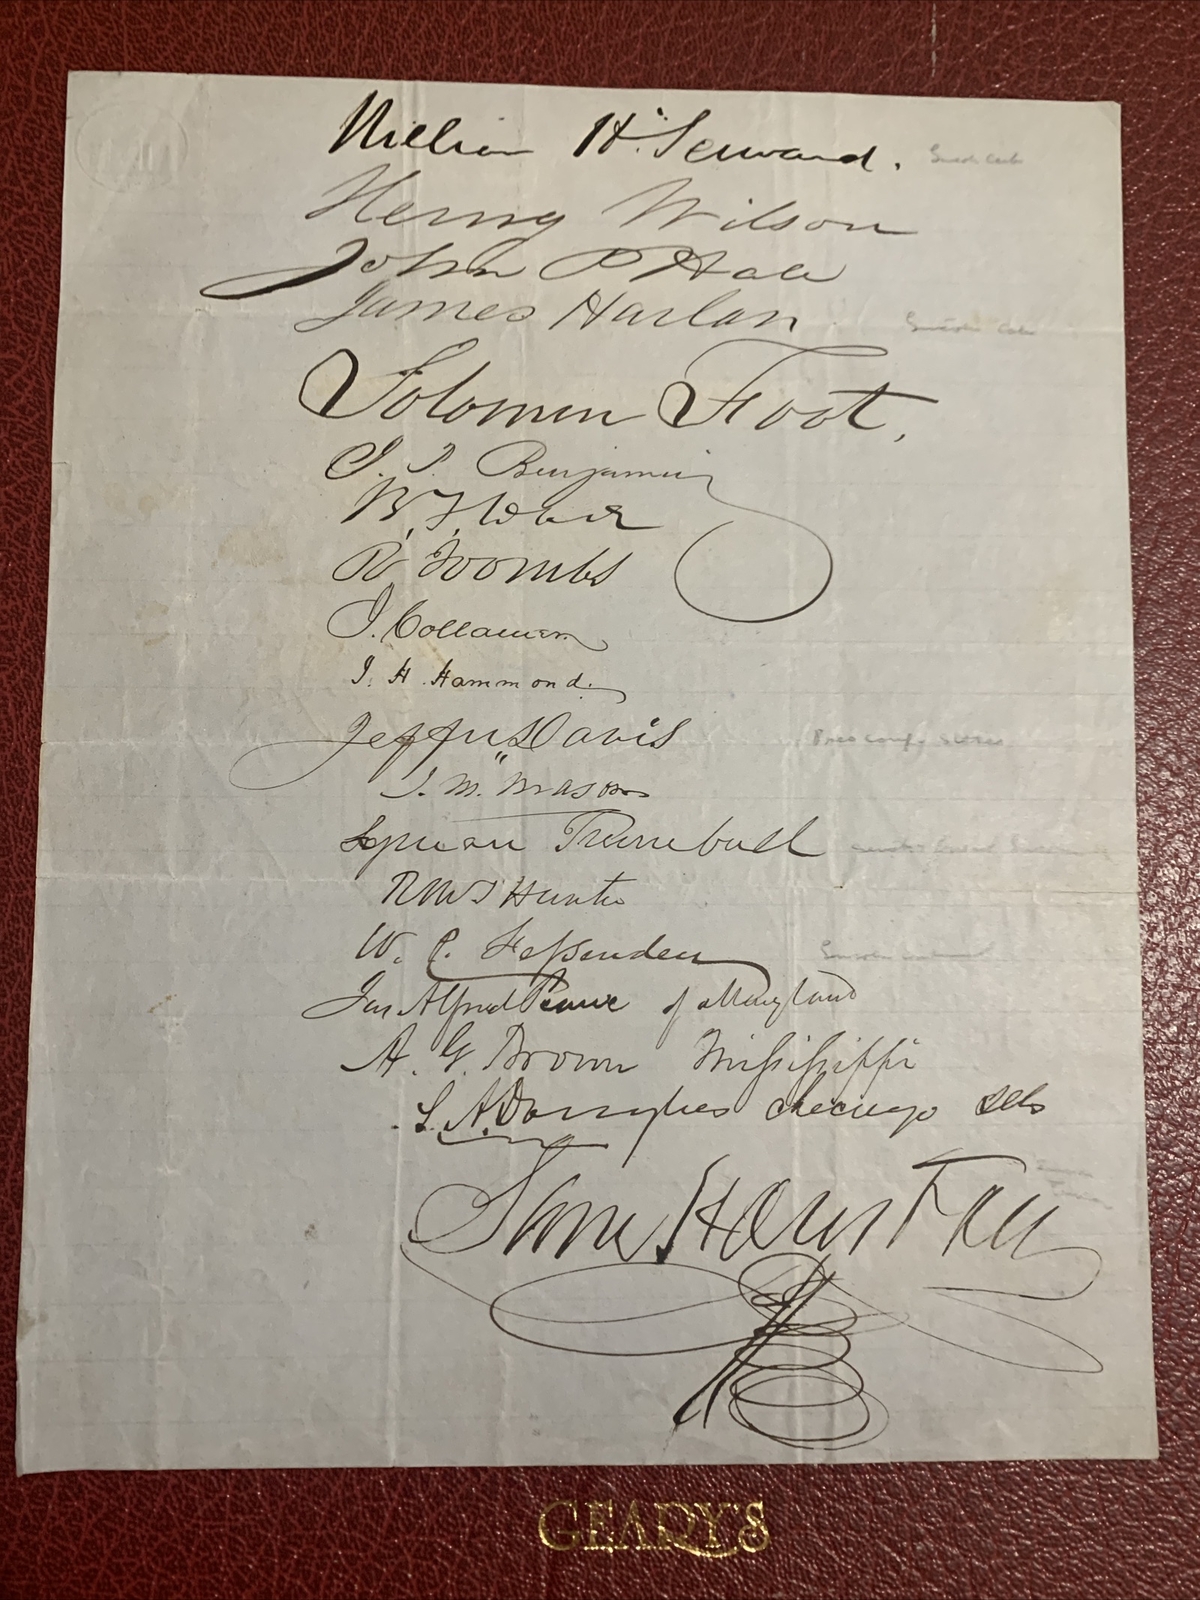 William H. Seward.
Henry Wilson
John P Hale
James Harlan
Solomon Foot,
J. P. Benjamin
B. F. Wade
R Toombs
J. Collamer
J. H. Hammond.
Jeffn Davis
J. M. Mason
Lyman Trumbull
RMT Hunter
W. P. Fessenden
Jas Alfred Pearce of Maryland
A. G. Brown Mississippi
S. A. Douglas Chicago Ills
Sam Houston
GEARY'S